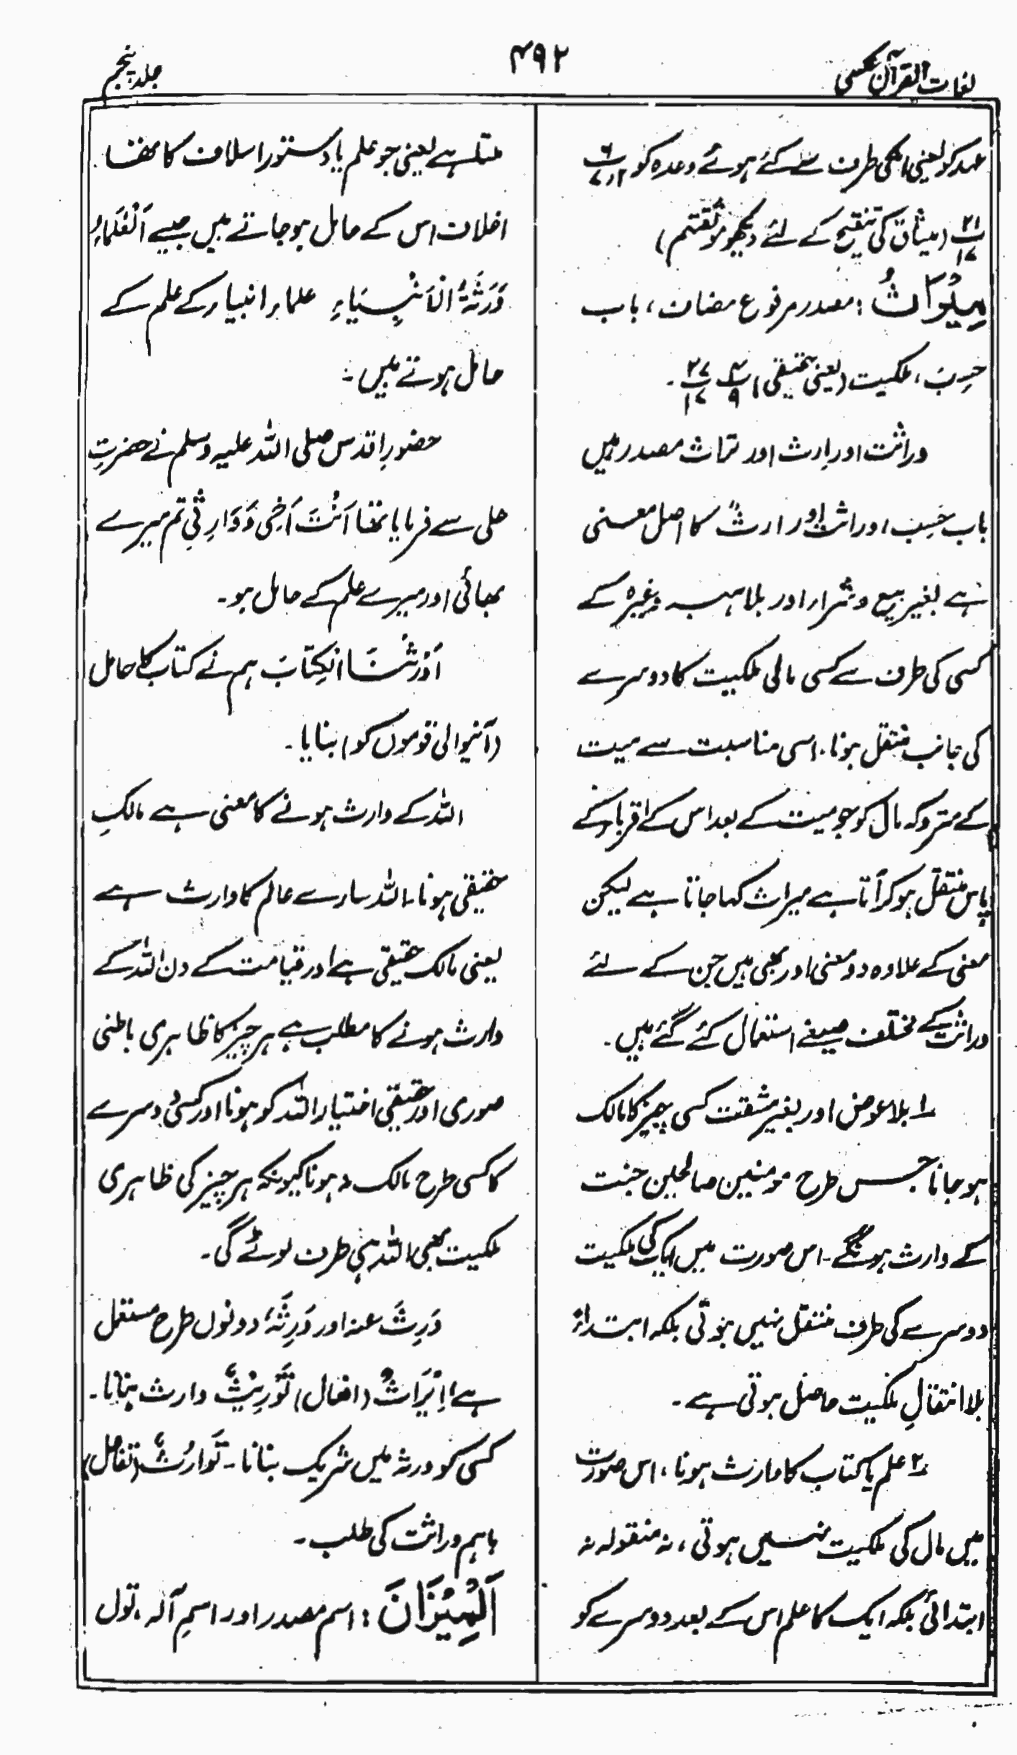 لغات القرآن عکسی
۴۹۲
جلد پنجم
عہد کو یعنی اللہ کی طرف سے کئے ہوئے وعدہ کو
۲۱/۱۷ (میثاق کی تنقیح کے لئے دیکھو موثقتم)
مِیْرَاثُ: مصدر مرفوع مضاف، باب
حَسِبَ، ملکیت (یعنی حقیقی) ۴/۹ ۲۷/۱۷۔
وراثت اور اِرث اور تراث مصدر ہیں
باب حَسِبَ، وراثت اور ارثٌ کا اصل معنی
ہے بغیر بیع و شراء اور بلا ہبہ وغیرہ کے
کسی کی طرف سے کسی مالی ملکیت کا دوسرے
کی جانب منتقل ہونا، اسی مناسبت سے میت
کے متروکہ مال کو جو میت کے بعد اس کے اقرباء کے
پاس منتقل ہو کر آتا ہے میراث کہا جاتا ہے لیکن
معنی کے علاوہ دو معنی اور بھی ہیں جن کے لئے
وراثت کے مختلف صیغے استعمال کئے گئے ہیں۔
۱ بلا عوض اور بغیر مشقت کسی چیز کا مالک
ہو جانا جس طرح مومنین صالحین جنت
کے وارث ہونگے۔ اس صورت میں ایک کی ملکیت
دوسرے کی طرف منتقل نہیں ہوتی بلکہ ابتداءً
بلا انتقالِ ملکیت حاصل ہوتی ہے۔
۲ علم یا کتاب کا وارث ہونا، اس صورت
میں مال کی ملکیت نہیں ہوتی، نہ منقولہ نہ
ابتدائی بلکہ ایک کا علم اس کے بعد دوسرے کو
ملتا ہے یعنی جو علم یا دستور اسلاف کا تھا
اخلاف اس کے حامل ہو جاتے ہیں جیسے اَلْعُلَمَاءُ
وَرَثَةُ الْاَنْبِیَاءِ علماء انبیاء کے علم کے
حامل ہوتے ہیں۔
حضور اقدس صلی اللہ علیہ وسلم نے حضرت
علی سے فرمایا تھا اَنْتَ اَخِیْ وَوَارِثِیْ تم میرے
بھائی اور میرے علم کے حامل ہو۔
اَوْرَثْنَا الْکِتَابَ ہم نے کتاب کا حامل
(آنیوالی قوموں کو) بنایا۔
اللہ کے وارث ہونے کا معنی ہے مالکِ
حقیقی ہونا۔ اللہ سارے عالم کا وارث ہے
یعنی مالک حقیقی ہے اور قیامت کے دن اللہ کے
وارث ہونے کا مطلب ہے ہر چیز کا ظاہری باطنی
صوری اور حقیقی اختیار اللہ کو ہونا اور کسی دوسرے
کا کسی طرح مالک نہ ہونا کیونکہ ہر چیز کی ظاہری
ملکیت بھی اللہ ہی طرف لوٹے گی۔
وَرِثَ عنہ اور وَرِثَہٗ دونوں طرح مستعمل
ہے، اِیْرَاثٌ (افعال) تَوْرِیْثٌ وارث بنانا۔
کسی کو ورثہ میں شریک بنانا۔ تَوَارُثٌ (تفاعل)
باہم وراثت کی طلب۔
اَلْمِیْزَانَ: اسم مصدر اور اسمِ آلہ، تول